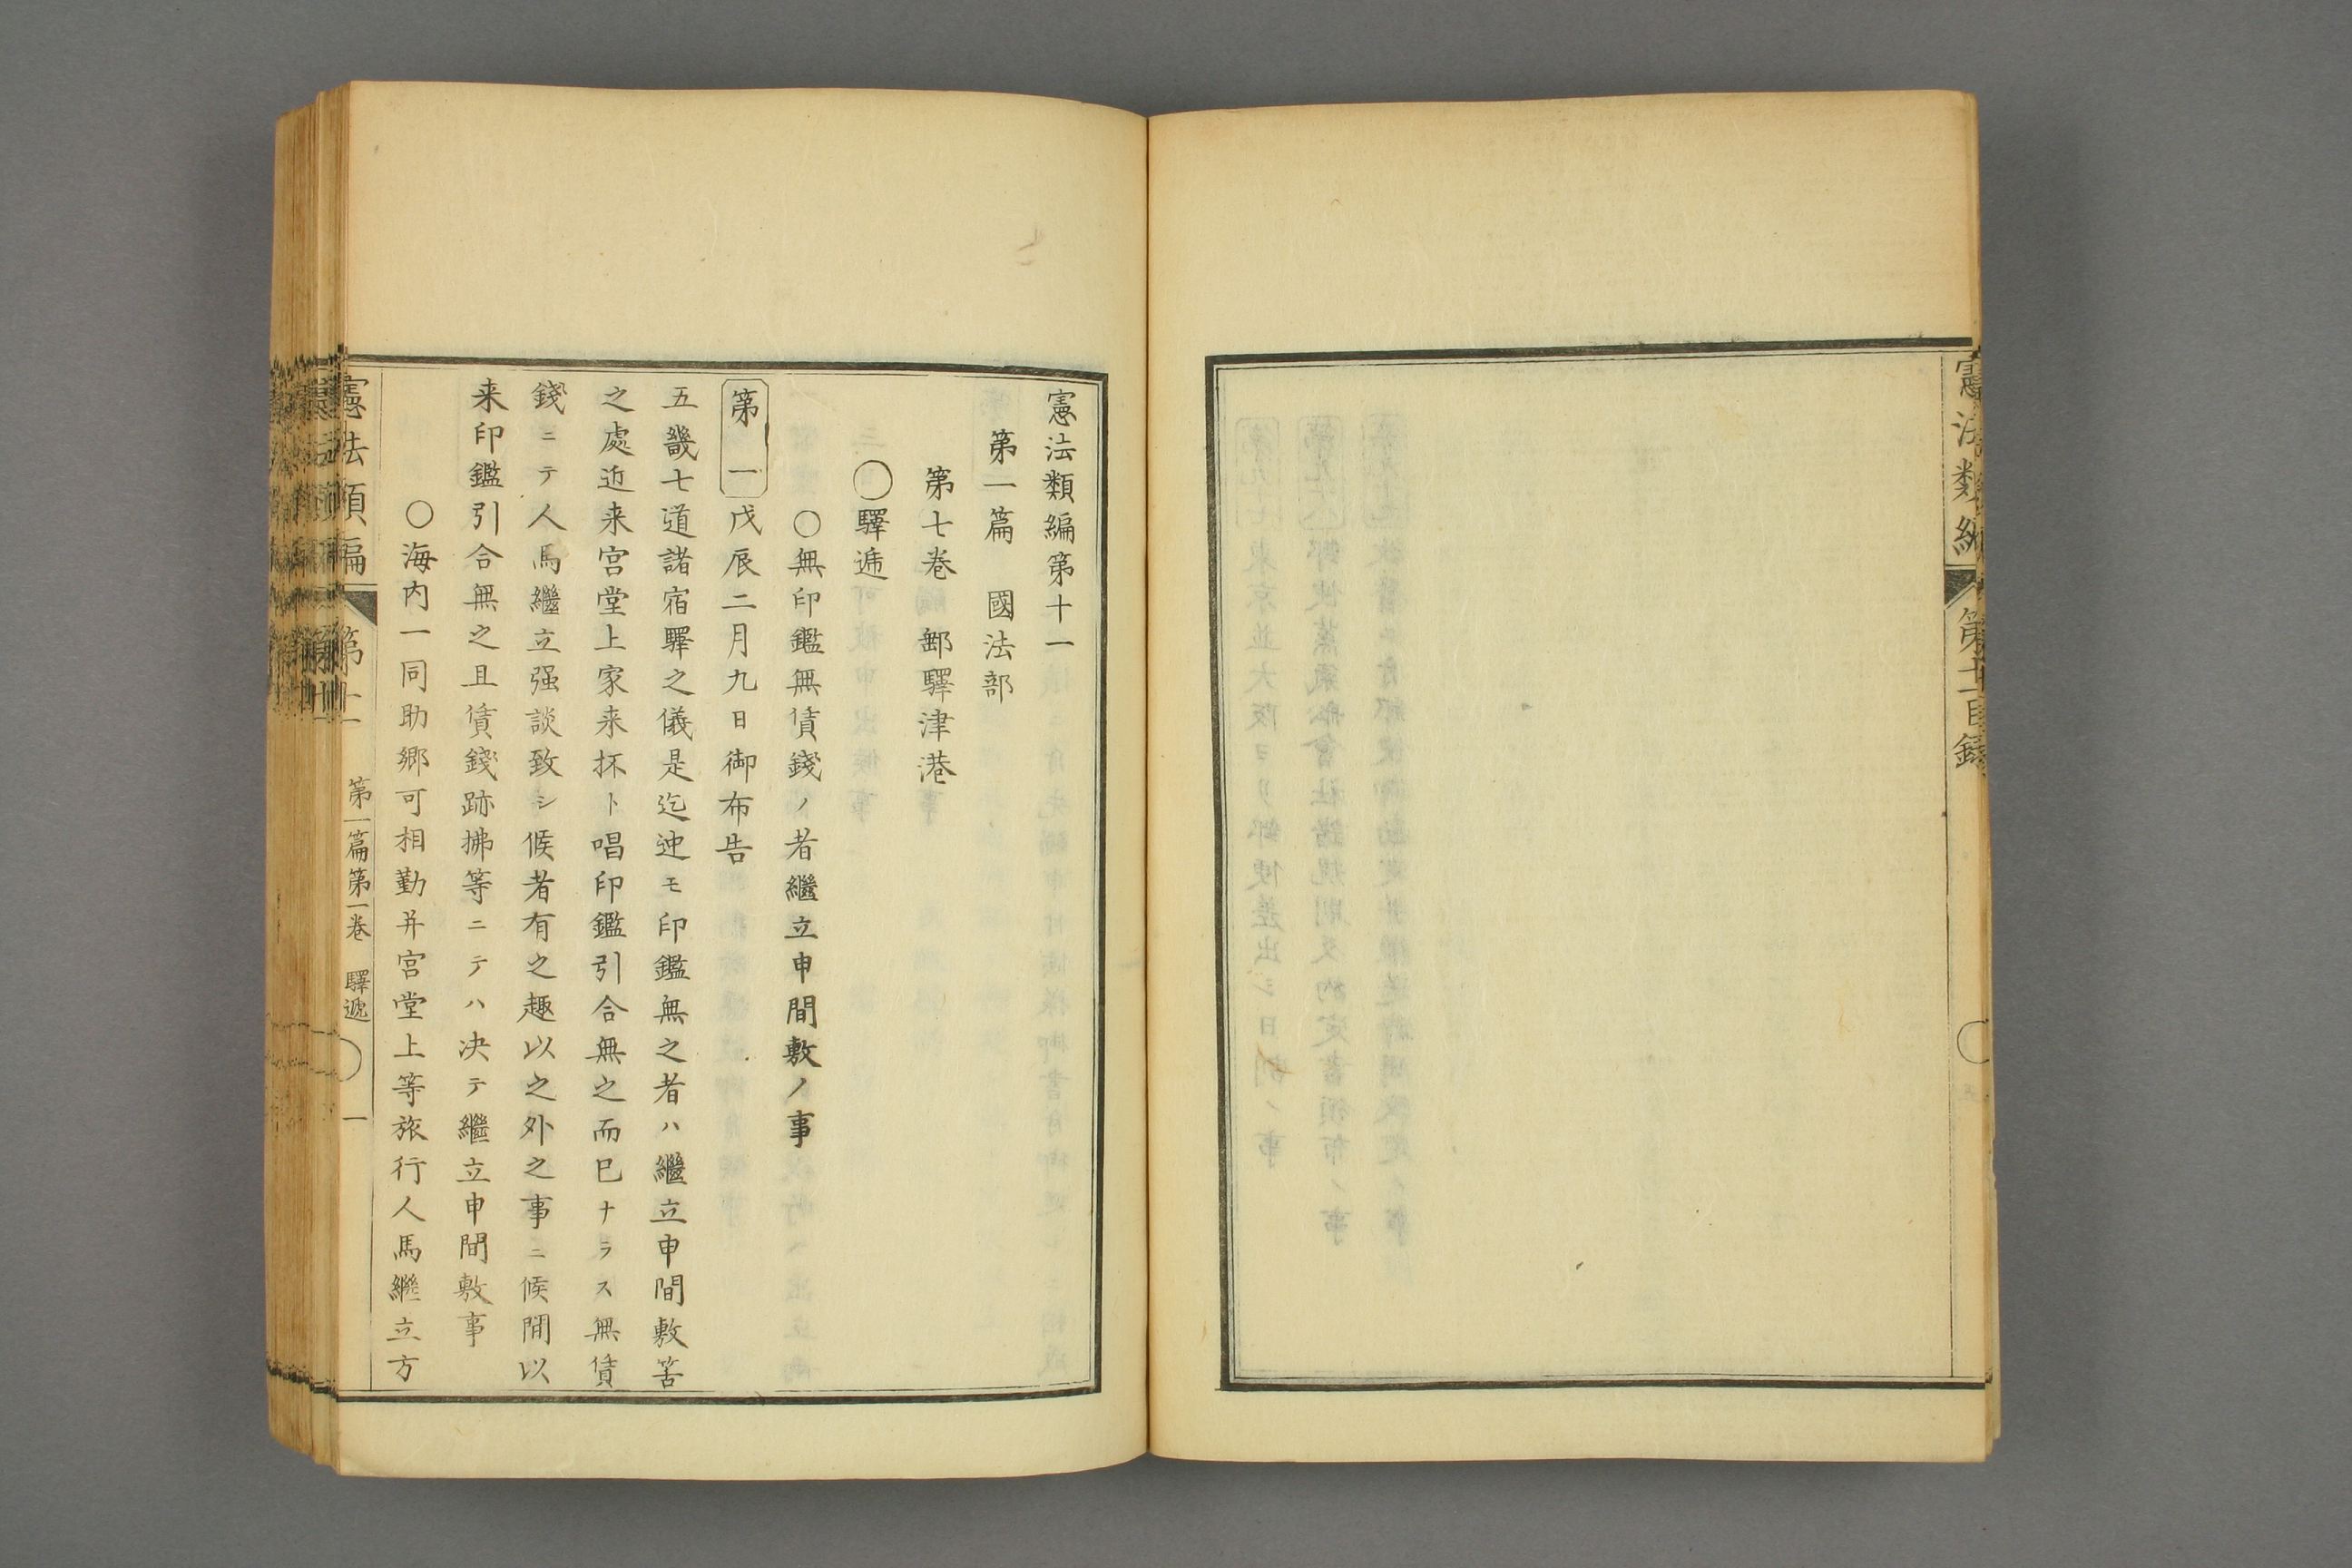 憲法類編
第十一目錄
憲法類編第十一
第一篇　國法部
第七巻　郵驛津港
◯驛逓
第一　戊辰二月九日御布告
〇無印鑑無賃錢ノ者繼立申間敷ノ事
五畿七道諸宿驛之儀是迄迚モ印鑑無之者ハ繼立申間敷筈
之處近来宮堂上家来抔ト唱印鑑引合無之而已ナラス無賃
錢ニテ人馬繼立强談致シ候者有之趣以之外之事ニ候間以
来印鑑引合無之且賃錢跡拂等ニテハ决テ繼立申間敷事
〇海内一同助郷可相勤并宮堂上等旅行人馬繼立方
憲法類編　第十一　第一篇第一巻　驛遞　一